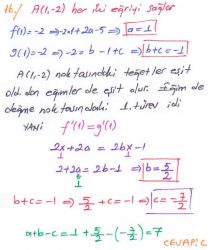 16/) A(1,-2) her iki eğriyi sağlar
f(1)=-2 ⇒ -2=1+2a-5 ⇒ a=1
g(1)=-2 ⇒ -2=b-1+c ⇒ b+c=-1
A(1,-2) noktasındaki teğetler eşit
old. dan eğimler de eşit olur. Eğim de
değme noktasındaki 1. türev idi
YANİ f'(1)=g'(1)
2x+2a = 2bx-1
1 1
2+2a=2b-1 ⇒ b=5/2
b+c=-1 ⇒ 5/2+c=-1 ⇒ c=-7/2
a+b-c = 1+5/2-(-7/2)=7
CEVAP: C